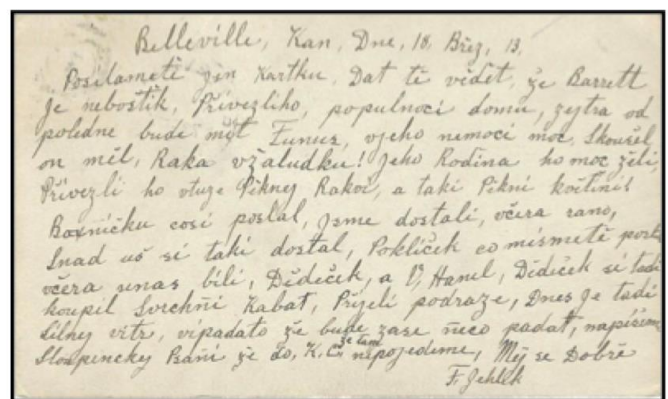 Belleville, Kan, Dne, 18. Břez, 13.
Posílámetě jen Kartku, Dat tě vědět, že Barrett
je nebostik, Přivezliho, populnoci domu, zejtra od
poledne bude myt Funus, vjeho nemoci moc, Skoušel,
on měl, Raka vžaludku! Jeho Rodina ho moc želi,
Přivezli ho Pěknej Rakoi, a taki Pěkni koitini!
Boxničku cosi poslal, jsme dostali, včera rano,
Snad uš si taki dostal, Poklíček co mismetě
včera unas bili, Dědeček, a V, Hanel, Dědeček si tadi
koupil Svrchni Kabat, Přijeli podraze, Dnes Je tadi
silny vitr, vipadato že bude zase něco padat, napišem
Psani že do, K. C. že tam nepojedeme, Měj se Dobře
F. Jehlik